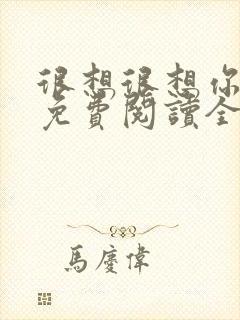 很想很想你
免費閱讀全
馬慶偉